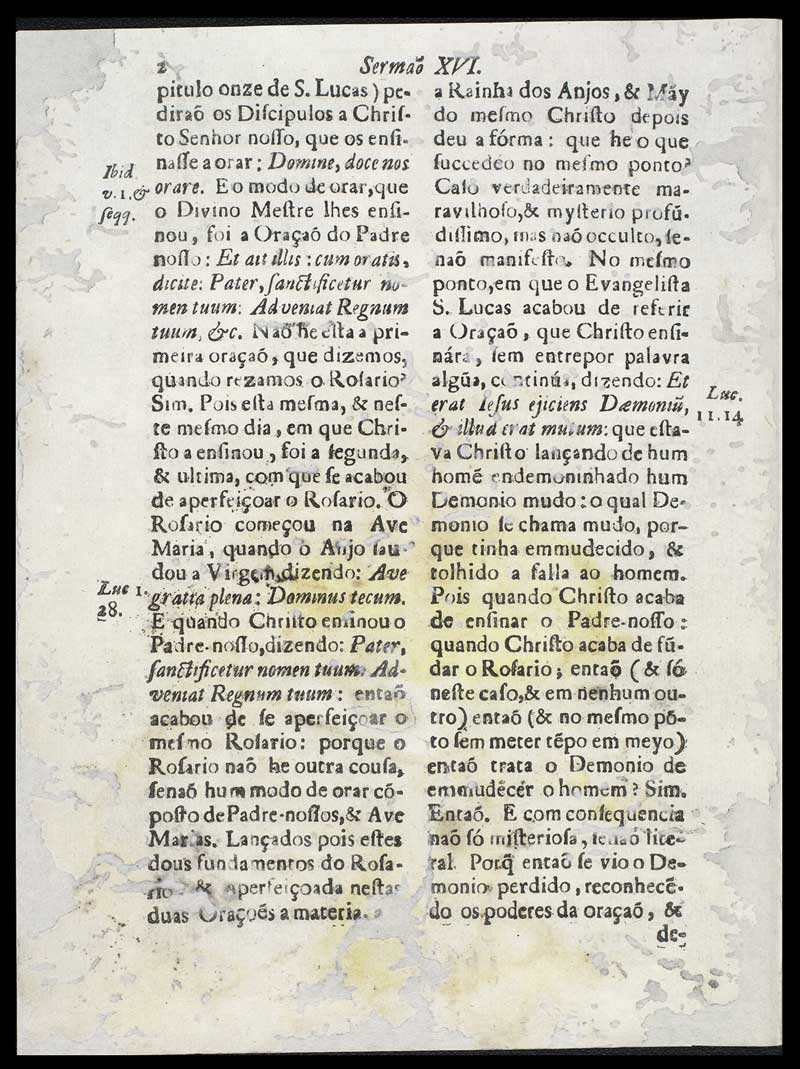 2 Sermaõ XVI.
pitulo onze de S. Lucas) pe-
diraõ os Diſcipulos a Chriſ-
to Senhor noſſo, que os enſi-
naſſe a orar: Domine, doce nos
Ibid.
v. 1. &
ſeqq.
orare. E o modo de orar, que
o Divino Meſtre lhes enſi-
nou, foi a Oraçaõ do Padre
noſſo: Et ait illis: cum oratis,
dicite: Pater, ſanctificetur no-
men tuum: Adveniat Regnum
tuum, &c. Naõ he eſta a pri-
meira oraçaõ, que dizemos,
quando rezamos o Roſario?
Sim. Pois eſta meſma, & neſ-
te meſmo dia, em que Chri-
ſto a enſinou, foi a ſegunda,
& ultima, com que ſe acabou
de aperfeiçoar o Roſario. O
Roſario começou na Ave
Maria, quando o Anjo ſau-
dou a Virgem, dizendo: Ave
Luc 1.
28.
gratia plena: Dominus tecum.
E quando Chriſto enſinou o
Padre-noſſo, dizendo: Pater,
ſanctificetur nomen tuum: Ad-
veniat Regnum tuum: entaõ
acabou de ſe aperfeiçoar o
meſmo Roſario: porque o
Roſario naõ he outra couſa,
ſenaõ hum modo de orar cõ-
poſto de Padre-noſſos, & Ave
Marias. Lançados pois eſtes
dous fundamentos do Roſa-
rio & aperfeiçoada neſtas
duas Oraçoés a materia.
a Rainha dos Anjos, & Mãy
do meſmo Chriſto depois
deu a fórma: que he o que
ſuccedeo no meſmo ponto?
Caſo verdadeiramente ma-
ravilhoſo, & myſterio profũ-
diſſimo, mas naõ occulto, ſe-
naõ manifeſto. No meſmo
ponto, em que o Evangeliſta
S. Lucas acabou de referir
a Oraçaõ, que Chriſto enſi-
nára, ſem entrepor palavra
algũa, continúa, dizendo: Et
Luc.
11.14
erat Ieſus ejiciens Dæmoniũ,
& illud erat mutum: que eſta-
va Chriſto lançando de hum
homẽ endemoninhado hum
Demonio mudo: o qual De-
monio ſe chama mudo, por-
que tinha emmudecido, &
tolhido a falla ao homem.
Pois quando Chriſto acaba
de enſinar o Padre-noſſo:
quando Chriſto acaba de fũ-
dar o Roſario; entaõ (& ſó
neſte caſo, & em nenhum ou-
tro) entaõ (& no meſmo põ-
to ſem meter tẽpo em meyo)
entaõ trata o Demonio de
emmudécér o homem? Sim.
Entaõ. E com conſequencia
naõ ſó miſterioſa, ſenaõ lite-
ral. Porq̃ entaõ ſe vio o De-
monio perdido, reconhecẽ-
do os poderes da oraçaõ, &
de-